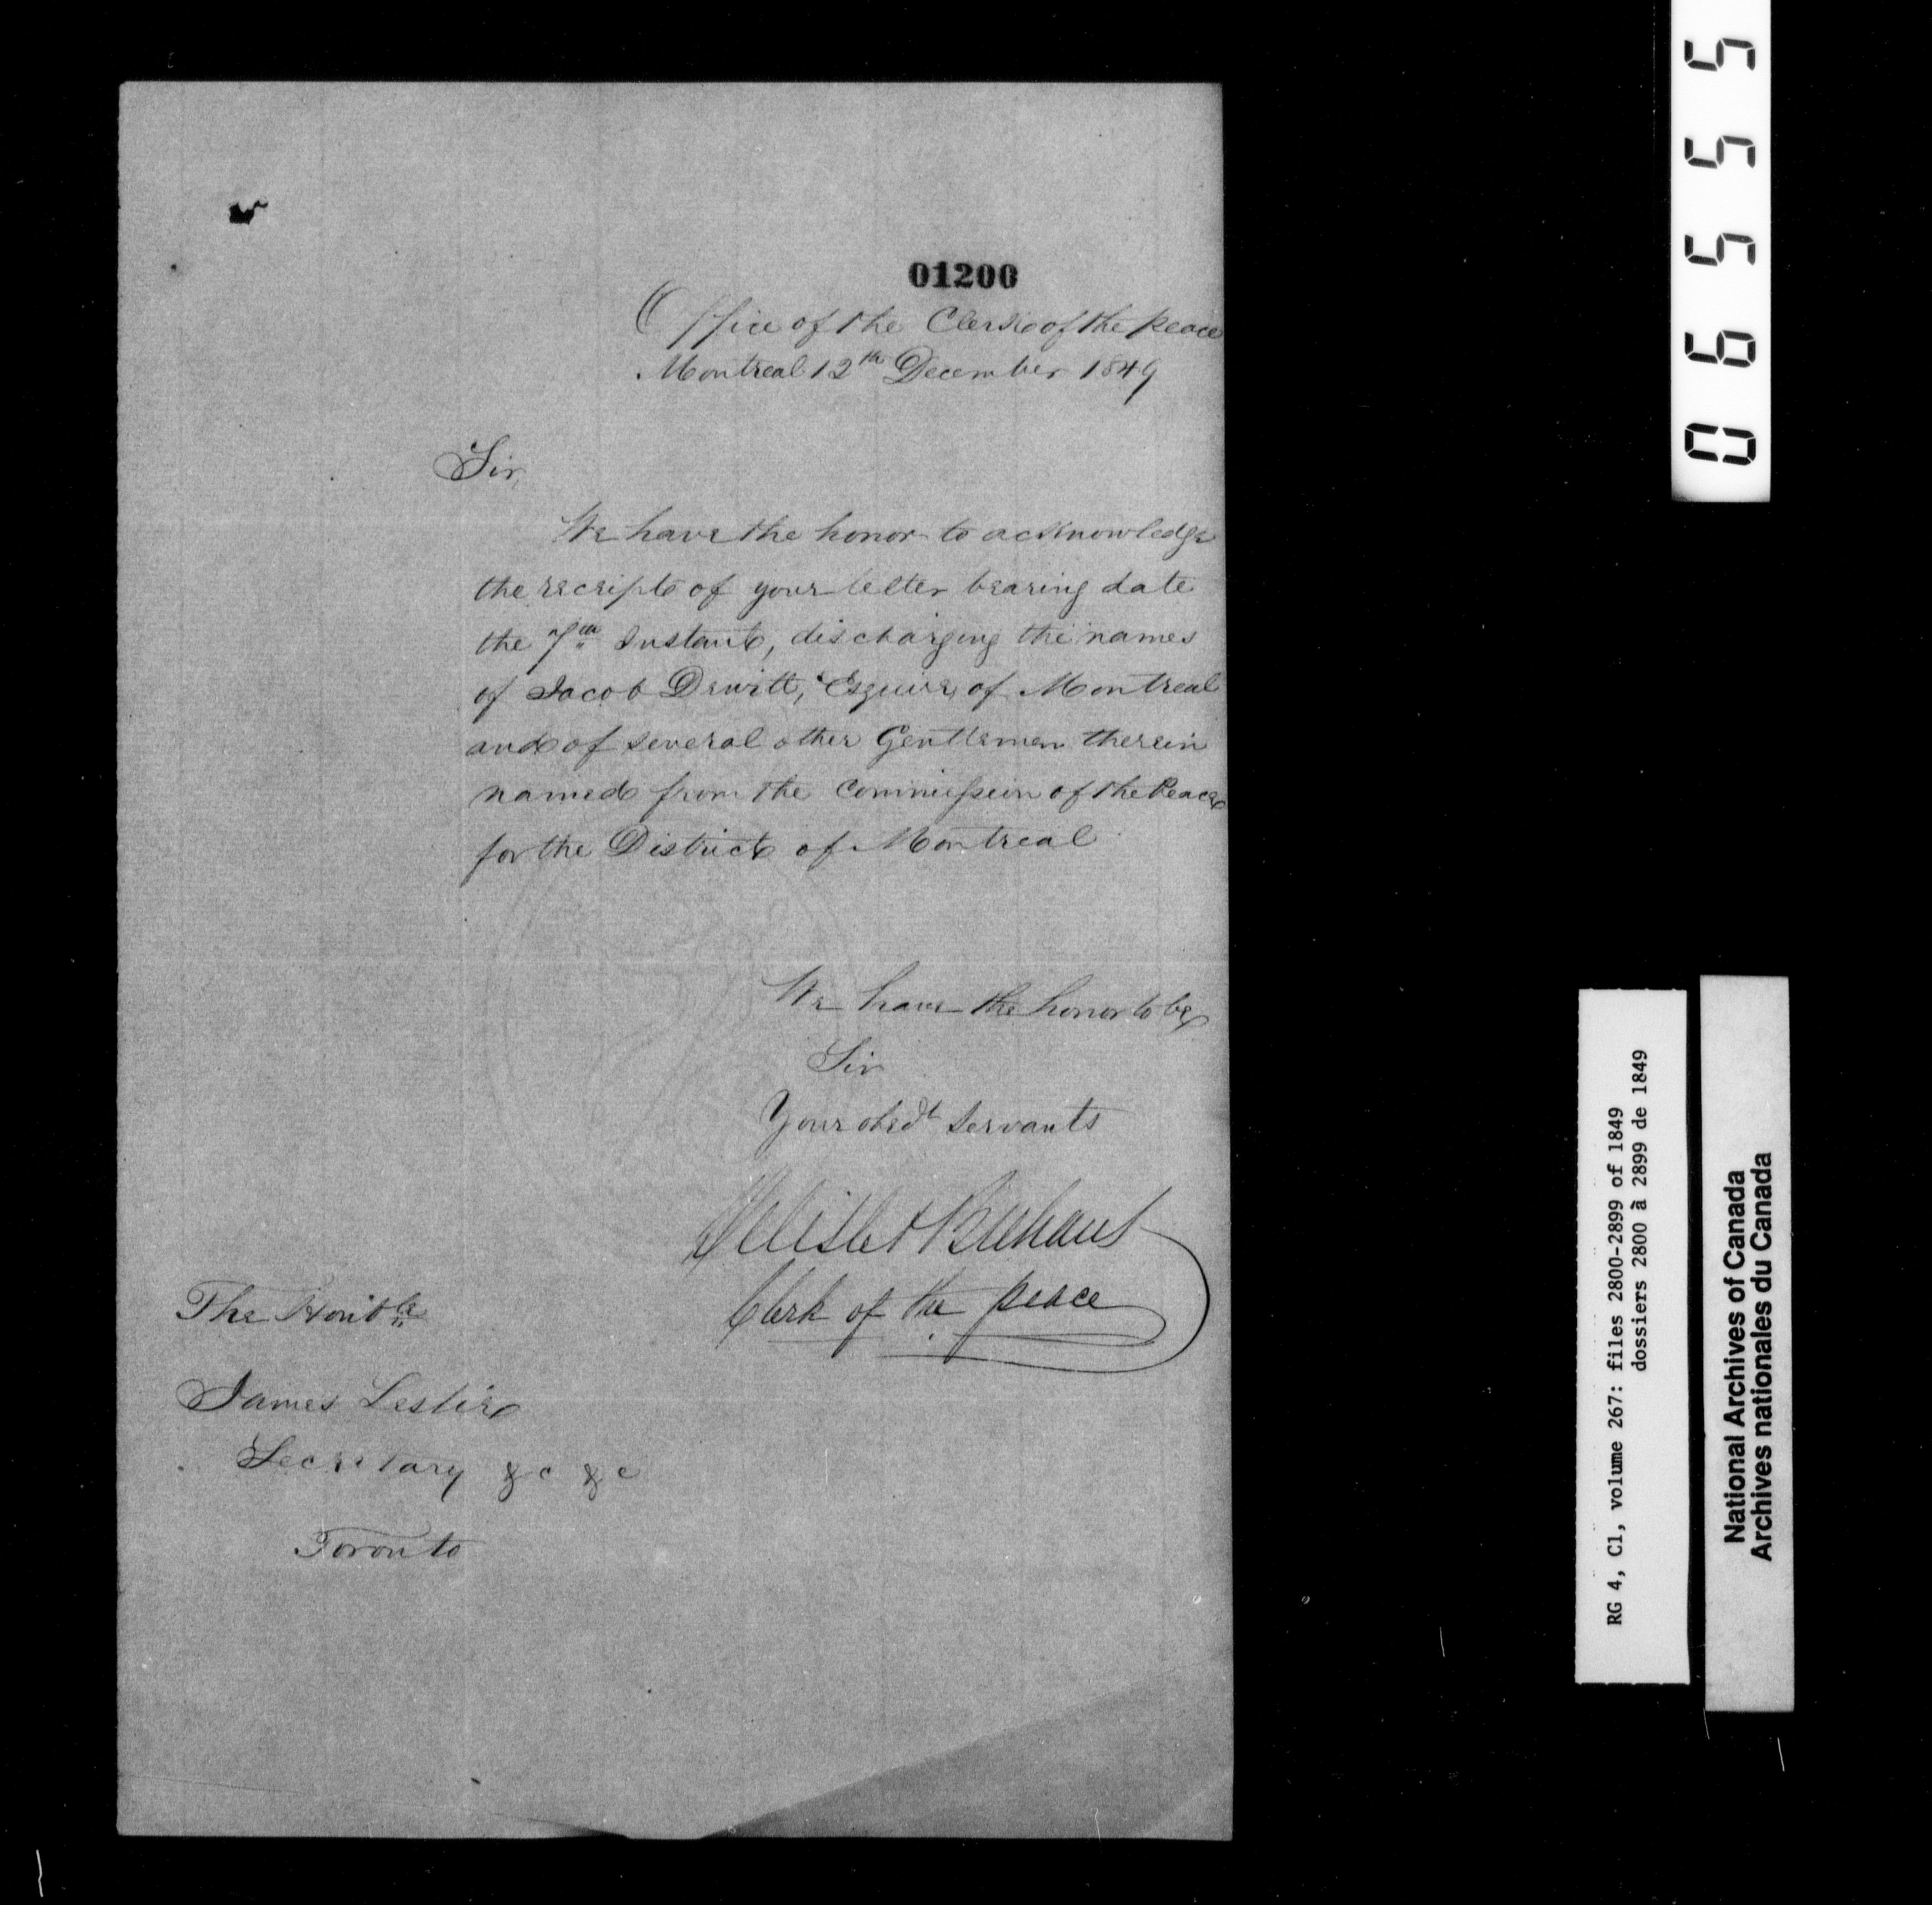 01200
Office of the Clerk of the peace
Montreal 12th December 1849
Sir,
We have the honor to acknowledge
the receipt of your letter bearing date
the 7th Instant, discharging the names
of Jacob Dewitt, Esquire, of Montreal
and of several other Gentlemen therein
named from the Commission of the Peace
for the District of Montreal
We have the honor to be
Sir
Your obedt Servants
Delisle & Brehaut
Clerk of the peace
The Honble
James Leslie
Secretary &c &c
Toronto
06555
RG 4, C1, volume 267: files 2800-2899 of 1849
dossiers 2800 à 2899 de 1849
National Archives of Canada
Archives nationales du Canada